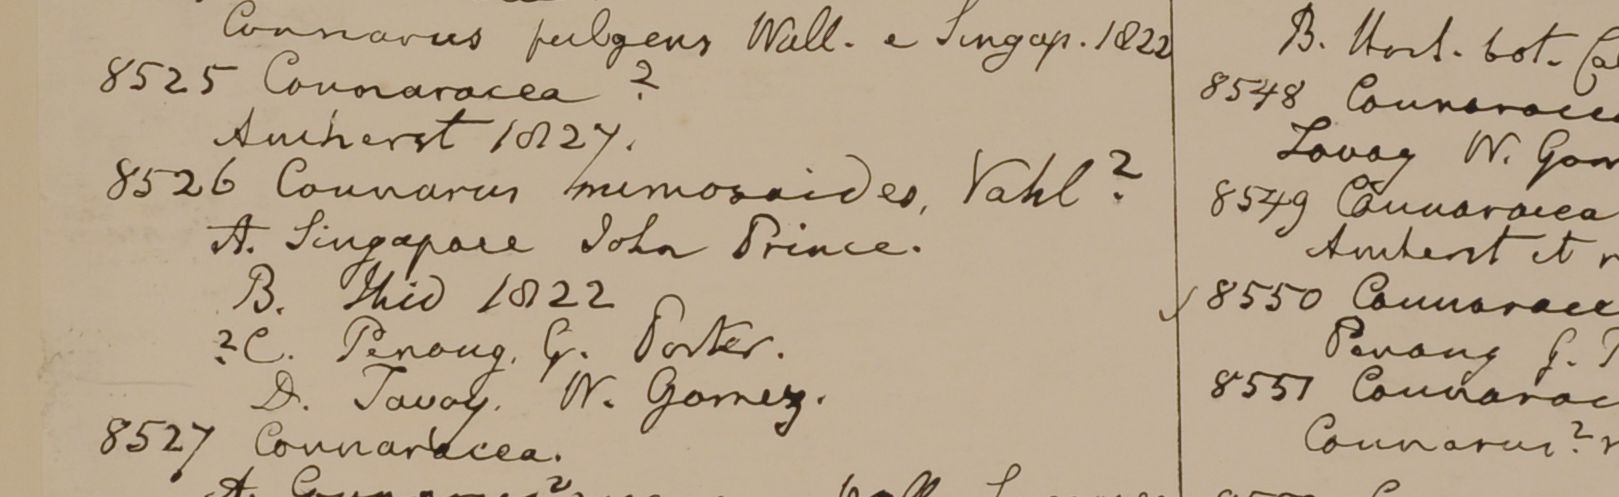 Connarus fulgens Wall. e Singap. 1822
8525 Connaracea ?
Amherst 1827.
8526 Connarus mimosoides, Vahl ?
A. Singapore John Prince.
B. Ibid 1822
? C. Penang. G. Porter.
D. Tavoy. W. Gomez.
8527 Connaracea.
A.
B. Hort. bot.
8548
Tavoy W.
8549 Connaracea
Amherst et
8550
Penang G.
8551
Connarus ?